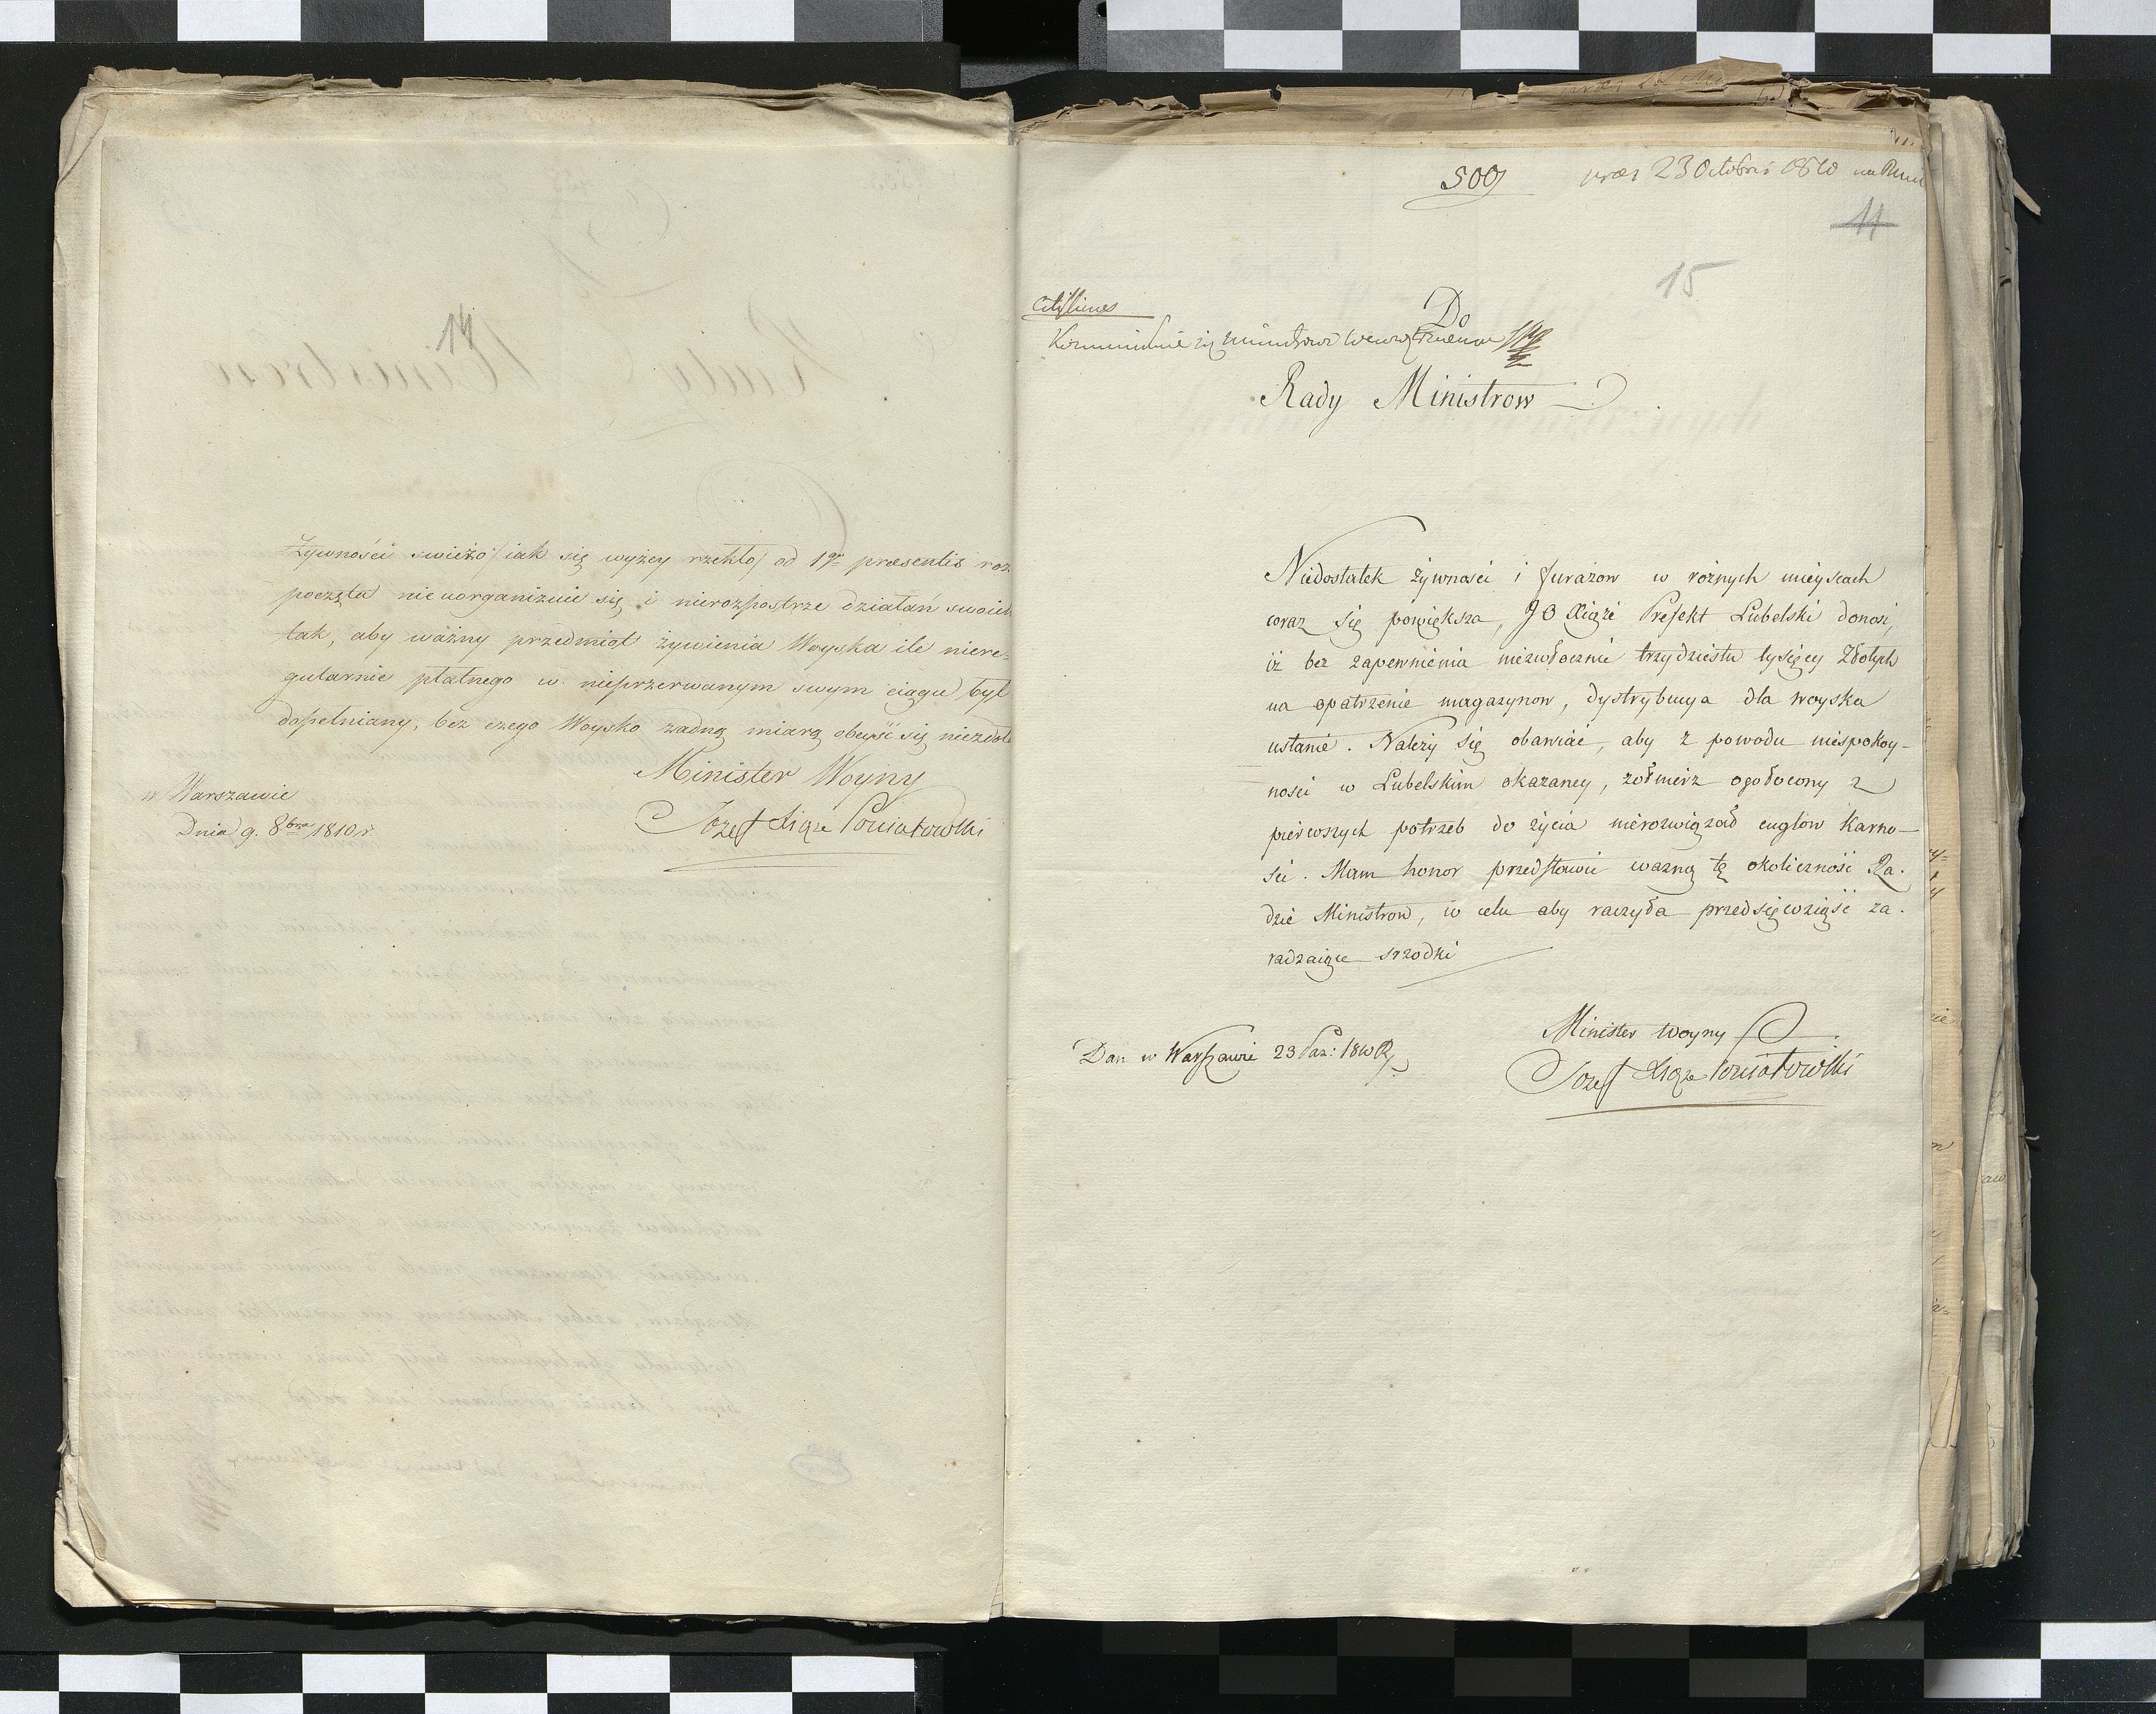 14
Żywności swieżo /iak się wyżey rzekło/ od 1go praesentis roz
poczęta nie uorganizuie się i nierozpostrze działań swoich
tak, aby ważny przedmiot żywienia Woyska ile niere=
gularnie płatnego w nieprzerwanym swym ciągu był
dopełniany, bez czego Woysko żadną miarą obeyść się niezdoła
Minister Woyny
w Warszawie
Dnia 9. 8bra 1810 r
Józef Xiąże Poniatowski
509
praes 23 Octobris 1810 na
11
15
Citissimes
Do
Rady Ministrow
Niedostatek żywnosci i furażow w rożnych mieyscach
coraz się powiększa, JO Xiąże Prefekt Lubelski donosi,
iż bez zapewnienia niezwłocznie trzydziestu tysięcy Złotych
na opatrzenie magazynow, dystrybucya dla woyska
ustanie. Należy się obawiać, aby z powodu niespokoy-
ności w Lubelskim okazaney, żołnierz ogołocony z
pierwszych potrzeb do życia nierozwiązał cuglow Karno-
sci. Mam honor przedstawić ważną tę okoliczność Ra-
dzie Ministrow, w celu aby raczyła przedsięwziąść za-
radzaiące srzodki
Minister Woyny
Dan w Warszawie 23 Paz: 1810 R
Józef Xiąże Poniatowski